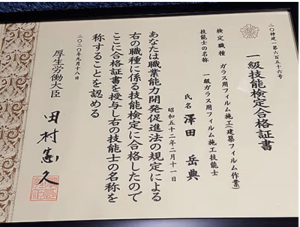 二〇神建一第六五七六号
一級技能検定合格証書
検定職種 ガラス用フィルム施工(建築フィルム作業)
技能士の名称 一級ガラス用フィルム施工技能士
氏名 澤田 岳典
昭和五十二年二月十一日
あなたは職業能力開発促進法の規定による
右の職種に係る技能検定に合格したので
ここに合格証書を授与し右の技能士の名称を
称することを認める
二〇二〇年九月十八日
厚生労働大臣 田村憲久